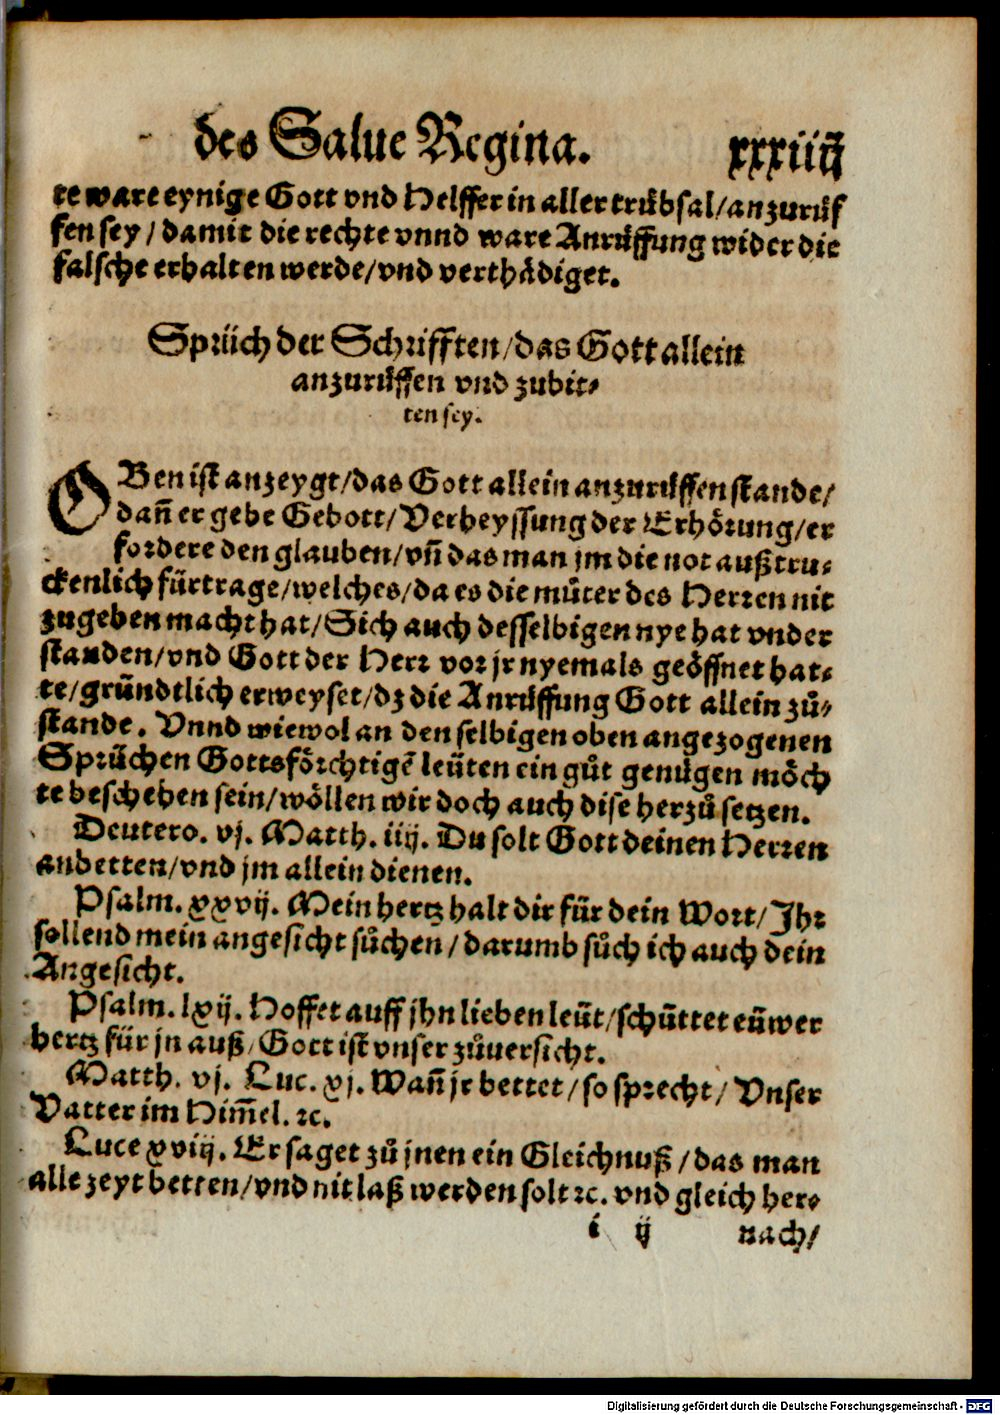 des Salue Regina. xxxiiij
te ware eynige Gott vnd Helffer in aller trübsal/anzurüf
fen sey/damit die rechte vnnd ware Anrüffung wider die
falsche erhalten werde/vnd verthädiget.
Sprüch der Schrifften/das Gott allein
anzurüffen vnd zubit⸗
ten sey.
OBen ist anzeygt/das Gott allein anzurüffen stande/
dañ er gebe Gebott/Verheyssung der Erhörung/er
fordere den glauben/vñ das man jm die not außtru⸗
ckenlich fürtrage/welches/da es die můter des Herren nit
zugeben macht hat/Sich auch desselbigen nye hat vnder
standen/vnd Gott der Herr vor jr nyemals geöffnet hat⸗
te/gründtlich erweyset/dz die Anrüffung Gott allein zů⸗
stande. Vnnd wiewol an den selbigen oben angezogenen
Sprüchen Gottsförchtigē leüten ein gůt genügen möch
te beschehen sein/wöllen wir doch auch dise herzů setzen.
Deutero. vj. Matth. iiij. Du solt Gott deinen Herren
anbetten/vnd jm allein dienen.
Psalm. xxvij. Mein hertz halt dir für dein Wort/Ihr
sollend mein angesicht sůchen/darumb sůch ich auch dein
Angesicht.
Psalm. lxij. Hoffet auff jhn lieben leüt/schüttet eüwer
hertz für jn auß/Gott ist vnser zůuersicht.
Matth. vj. Luc. xj. Wañ jr bettet/so sprecht/Vnser
Vatter im Him̄el. ꝛc.
Luce xviij. Er saget zů jnen ein Gleichnuß/das man
alle zeyt betten/vnd nit laß werden solt ꝛc. vnd gleich her⸗
i ij nach/
Digitalisierung gefördert durch die Deutsche Forschungsgemeinschaft - DFG